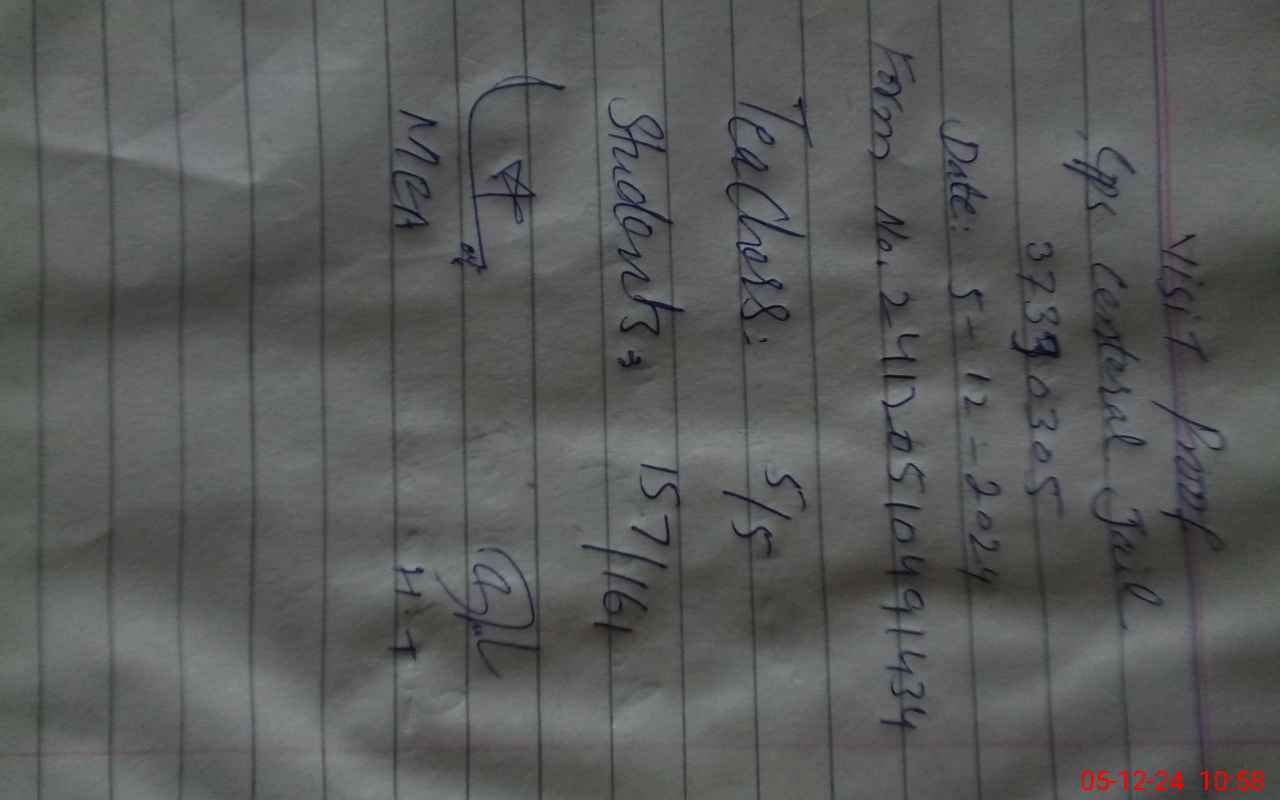 Visit Proof
Gps Centeral Jail
37390305
Date: 5-12-2024
Form No. 24120510491434
Teachers: 5/5
Students: 157/161
MEA H.T
05-12-24 10:58